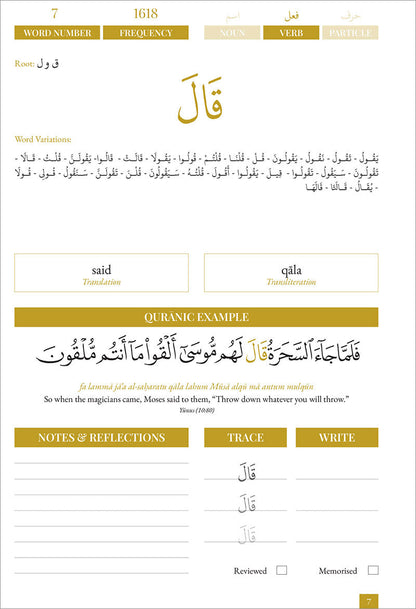 7 1618 اسم فعل حرف
WORD NUMBER FREQUENCY NOUN VERB PARTICLE
Root: ق و ل
قَالَ
Word Variations:
يَقُولُ - تَقُولُ - نَقُولُ - يَقُولُونَ - قُلْ - قُلْنَا - قُلْتُمْ - قُولُوا - يَقُولَا - قَالَتْ - قَالُوا - يَقُولَنَّ - قُلْتُ - قَالَا -
تَقُولُونَ - سَيَقُولُ - تَقُولُوا - قِيلَ - يَقُولُوا - أَقُولَ - قُلْتُهُ - سَيَقُولُونَ - قُلْنَ - تَقُولَنَّ - سَنَقُولُ - قُولِي - قُولَا
- يُقَالُ - قَالَتَا - قَالَهَا
said qāla
Translation Transliteration
QURĀNIC EXAMPLE
فَلَمَّا جَآءَ ٱلسَّحَرَةُ قَالَ لَهُم مُّوسَىٰٓ أَلْقُوا۟ مَآ أَنتُم مُّلْقُونَ
fa lammā jā’a al-saḥaratu qāla lahum Mūsā alqū mā antum mulqūn
So when the magicians came, Moses said to them, “Throw down whatever you will throw.”
Yūnus (10:80)
NOTES & REFLECTIONS TRACE WRITE
قَالَ
قَالَ
قَالَ
Reviewed Memorised
7